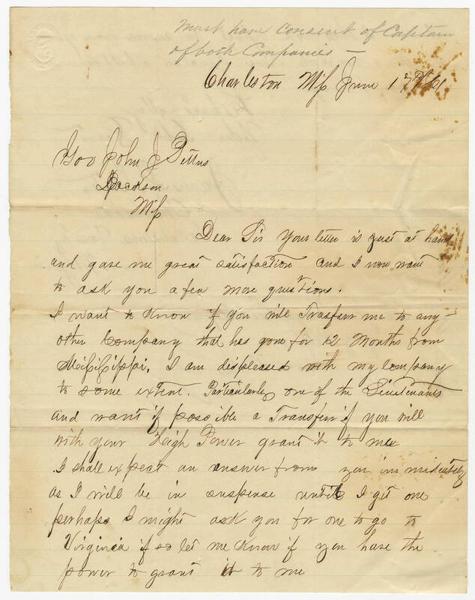 Must have consent of Captain
of both Companies —
Charleston Mi/s June 17th /61
Gov John J Pettus
Jackson
Mi/s
Dear Sir Your letter is just at hand
and gave me great satisfaction and I now want
to ask you a few more questions.
I want to Know if you will Trasfer me to any-
other Company that has gone for 12 Months from
Mississippi, I am displeased with my company
to some extent. Particularly one of the Lieutenants
and want if possible a Transfer if you will
with your Heigh Power grant it to me
I shall expect an answer from you immediately
as I will be in suspense until I get one
perhaps I might ask you for one to go to
Virginia if so let me Know if you have the
power to grant it to me